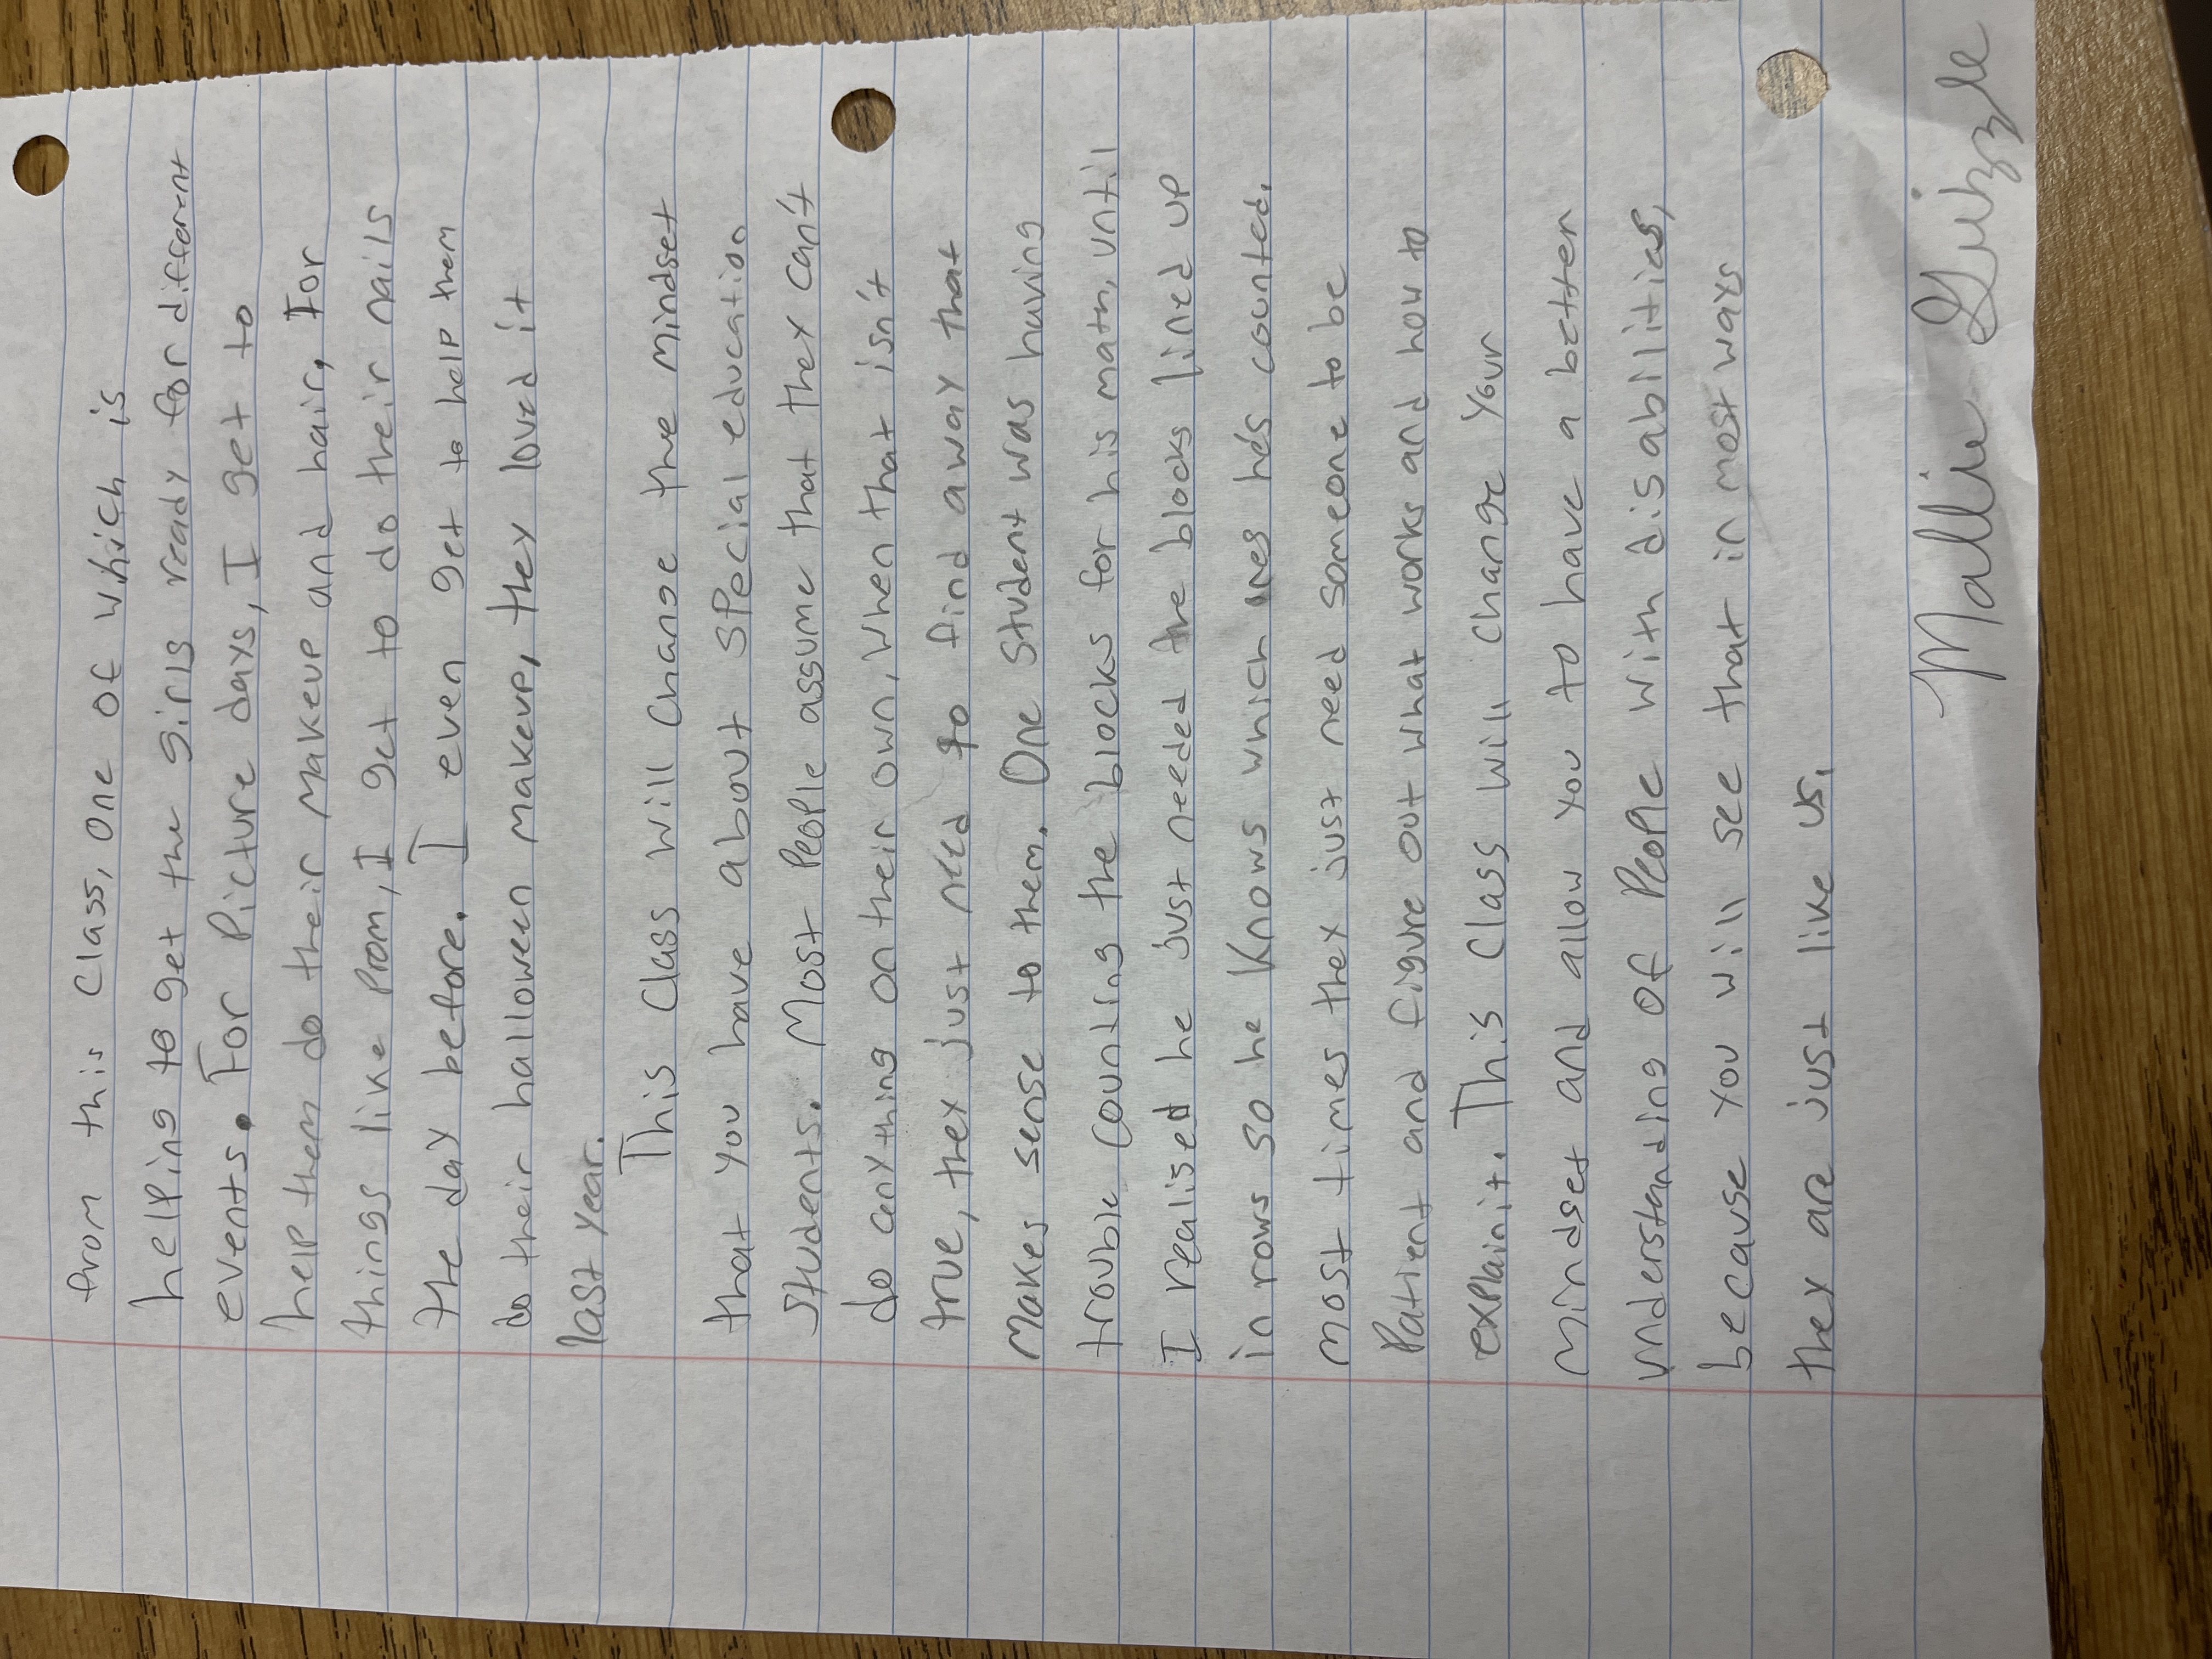 from this class, one of which is
helping to get the girls ready for different
events. For picture days, I get to
help them do their makeup and hair, For
things like prom, I get to do their nails
the day before. I even get to help them
do their halloween makeup, they loved it
last year.
This class will change the mindset
that you have about special education
students. Most people assume that they can't
do anything on their own, when that isn't
true, they just need to find a way that
makes sense to them. One student was having
trouble counting the blocks for his math, until
I realised he just needed the blocks lined up
in rows so he knows which ones he's counted.
most times they just need someone to be
patient and figure out what works and how to
explain it. This class will change your
mindset and allow you to have a better
understanding of people with disabilities,
because you will see that in most ways
they are just like us.
Mallie